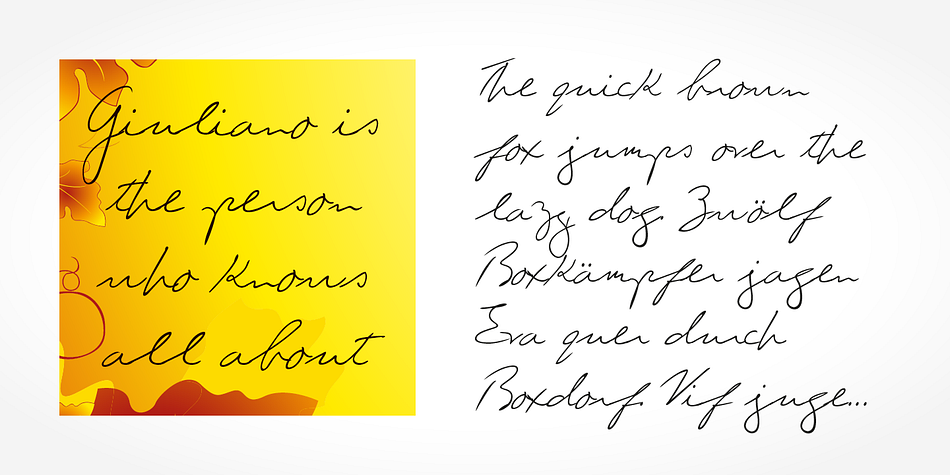 Giuliano is
the person
who knows
all about
The quick brown
fox jumps over the
lazy dog. Zwölf
Boxkämpfer jagen
Eva quer durch
Boxdorf. Vif juge...